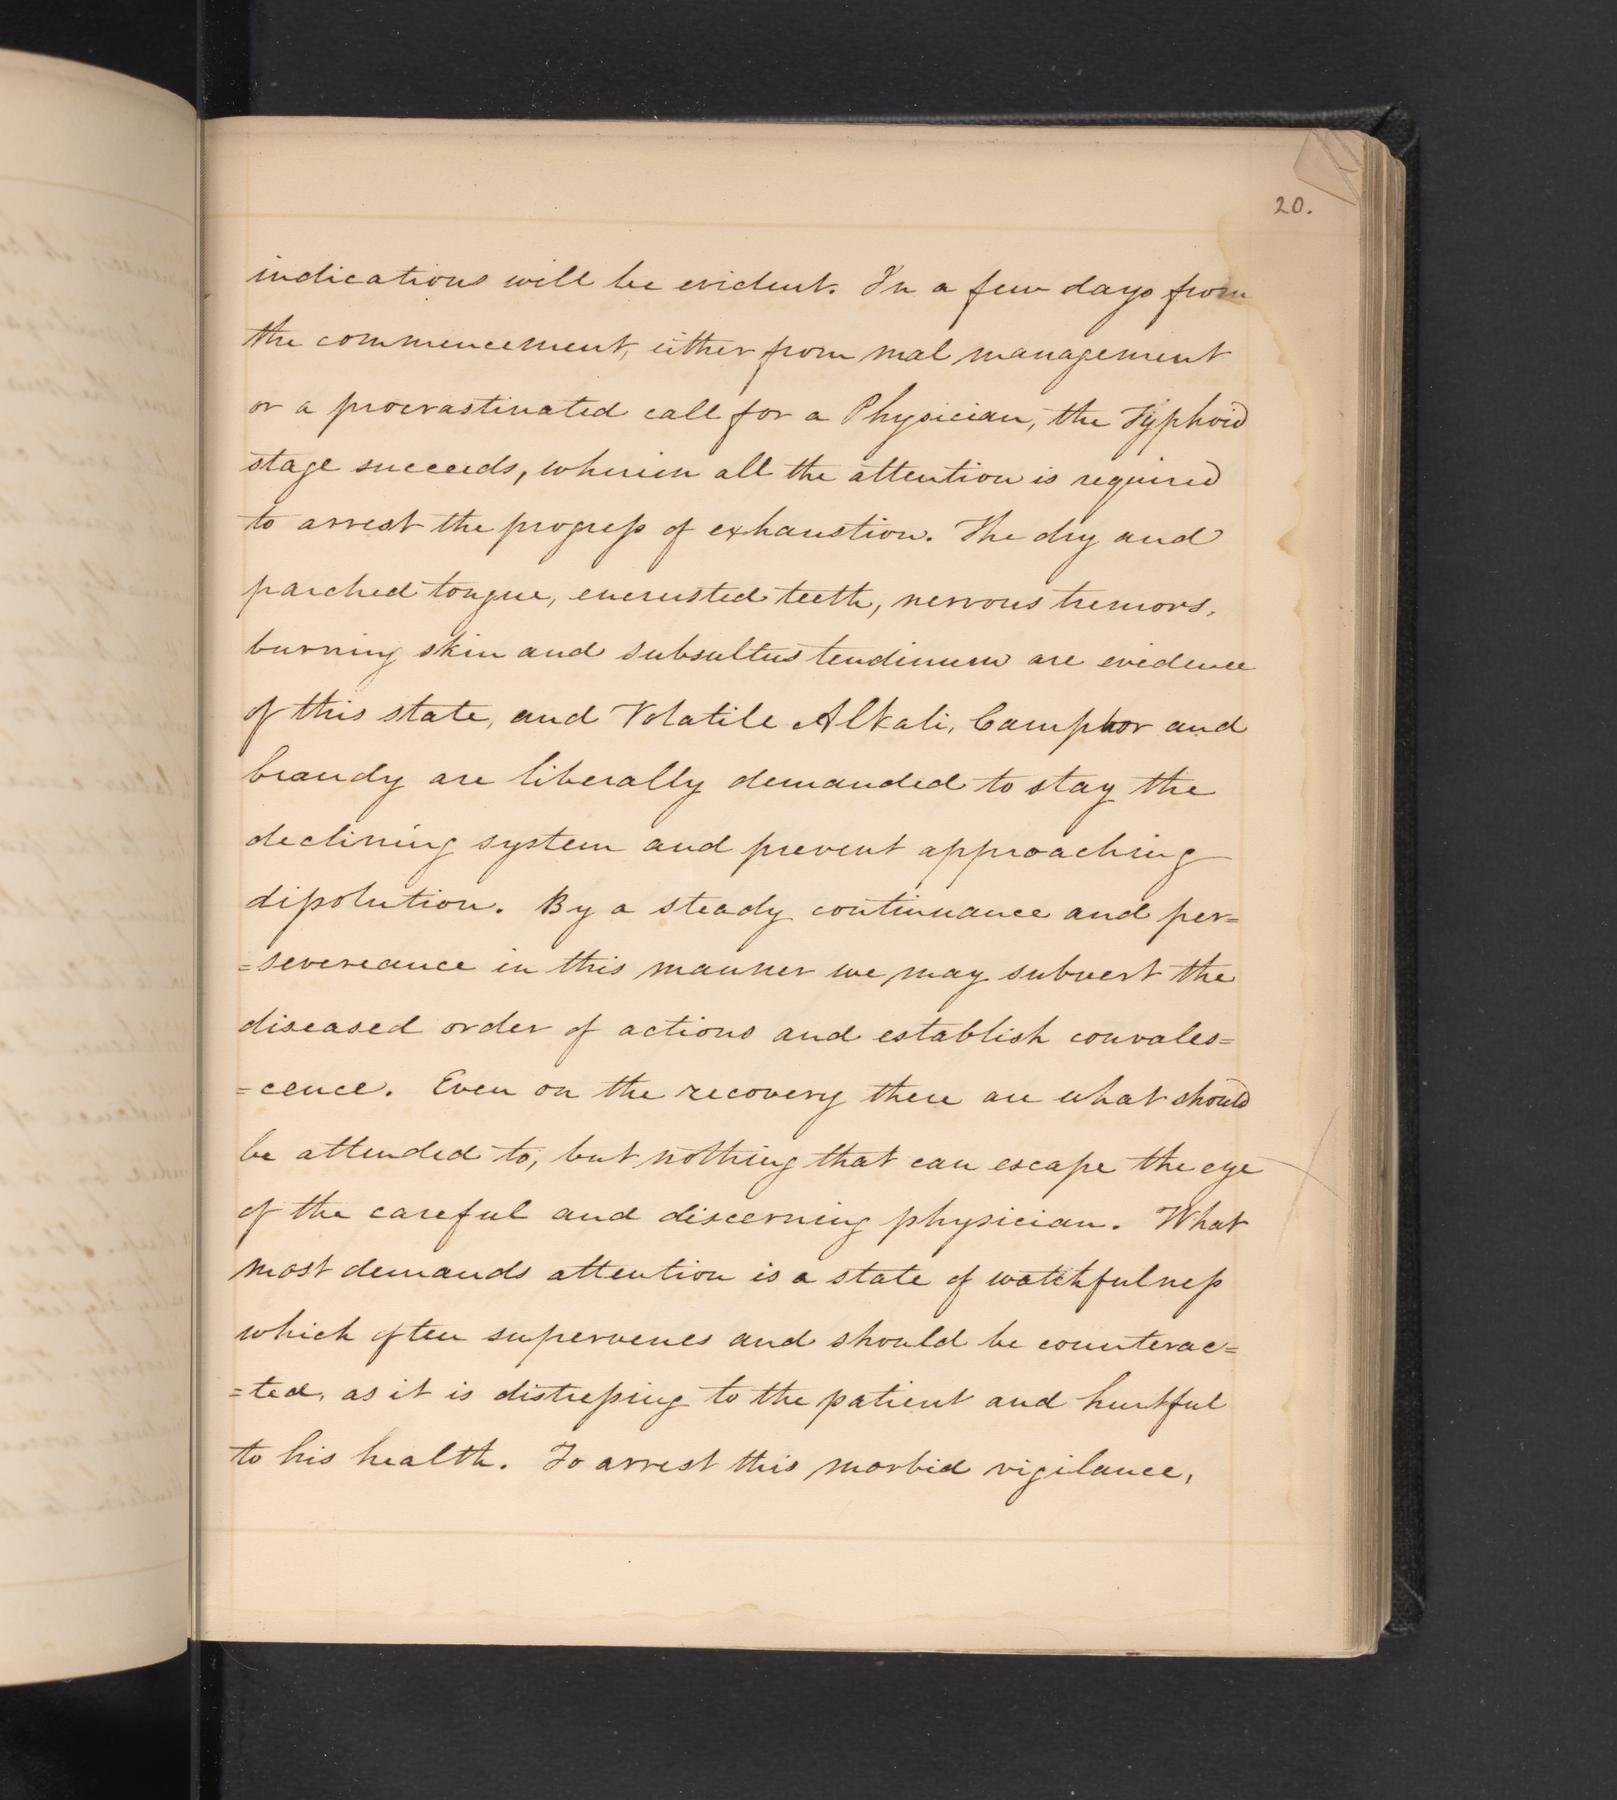 20.
indications will be evident. In a few days from
the commencement, either from mal management
or a procrastinated call for a Physician, the Typhoid
stage succeeds, wherein all the attention is required
to arrest the progress of exhaustion. The dry and
parched tongue, encrusted teeth, nervous tremors,
burning skin and subsultus tendinum are evidence
of this state, and Volatile Alkali, Camphor and
brandy are liberally demanded to stay the
declining system and prevent approaching
dissolution. By a steady continuance and per=
=severeance in this manner we may subvert the
diseased order of actions and establish convales=
=cence. Even on the recovery there are what should
be attended to, but nothing that can escape the eye
of the careful and discerning physician. What
most demands attention is a state of watchfulness
which often supervenes and should be counterac=
=ted, as it is distressing to the patient and hurtful
to his health. To arrest this morbid vigilance,